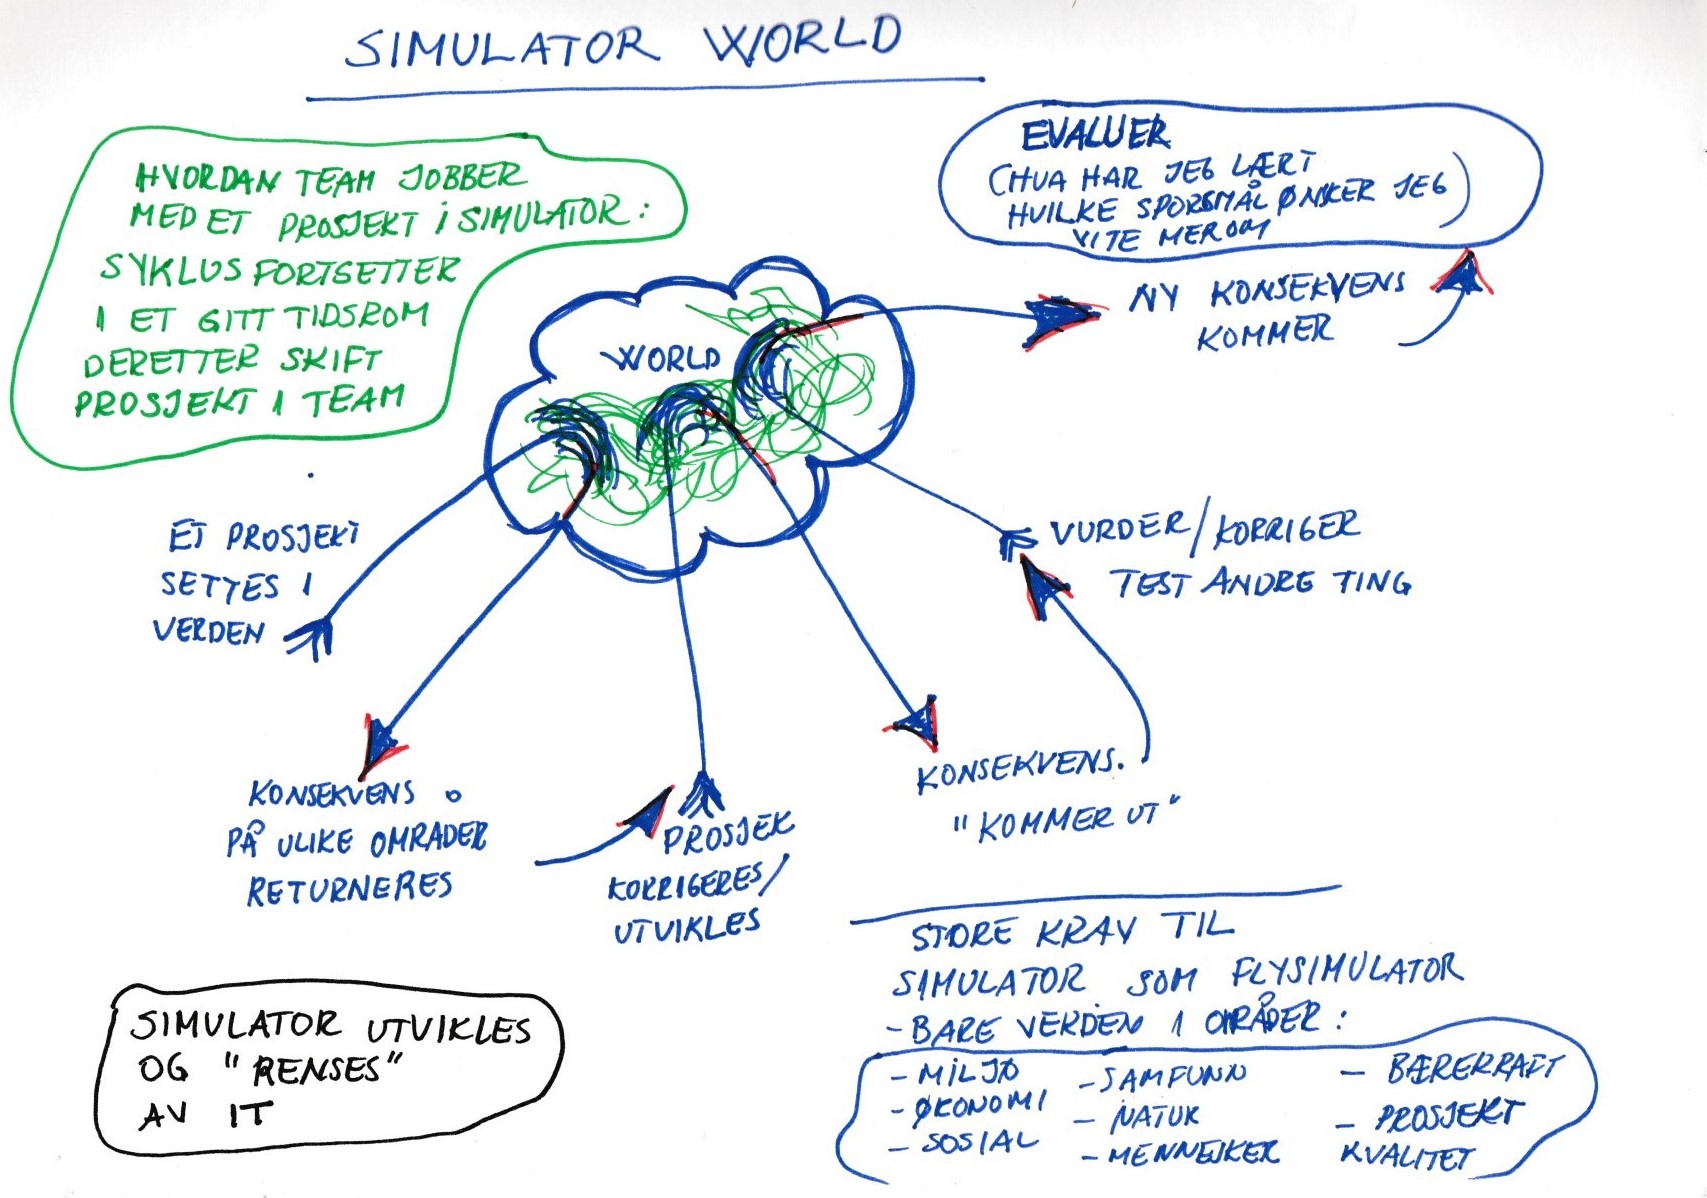 SIMULATOR WORLD
HVORDAN TEAM JOBBER
MED ET PROSJEKT I SIMULATOR:
SYKLUS FORTSETTER
I ET GITT TIDSROM
DERETTER SKIFT
PROSJEKT I TEAM
EVALUER
(HVA HAR JEG LÆRT
HVILKE SPORSMÅL ØNSKER JEG)
VITE MER OM
NY KONSEKVENS
KOMMER
WORLD
ET PROSJEKT
SETTES I
VERDEN
VURDER/KORRIGER
TEST ANDRE TING
KONSEKVENS
PÅ ULIKE OMRÅDER
RETURNERES
PROSJEK
KORRIGERES/
UTVIKLES
KONSEKVENS.
"KOMMER UT"
STORE KRAV TIL
SIMULATOR SOM FLYSIMULATOR
- BARE VERDEN I OMRÅDER:
- MILJØ
- ØKONOMI
- SOSIAL
- SAMFUNN
- NATUR
- MENNESKER
- BÆREKRAFT
- PROSJEKT
KVALITET
SIMULATOR UTVIKLES
OG "RENSES"
AV IT